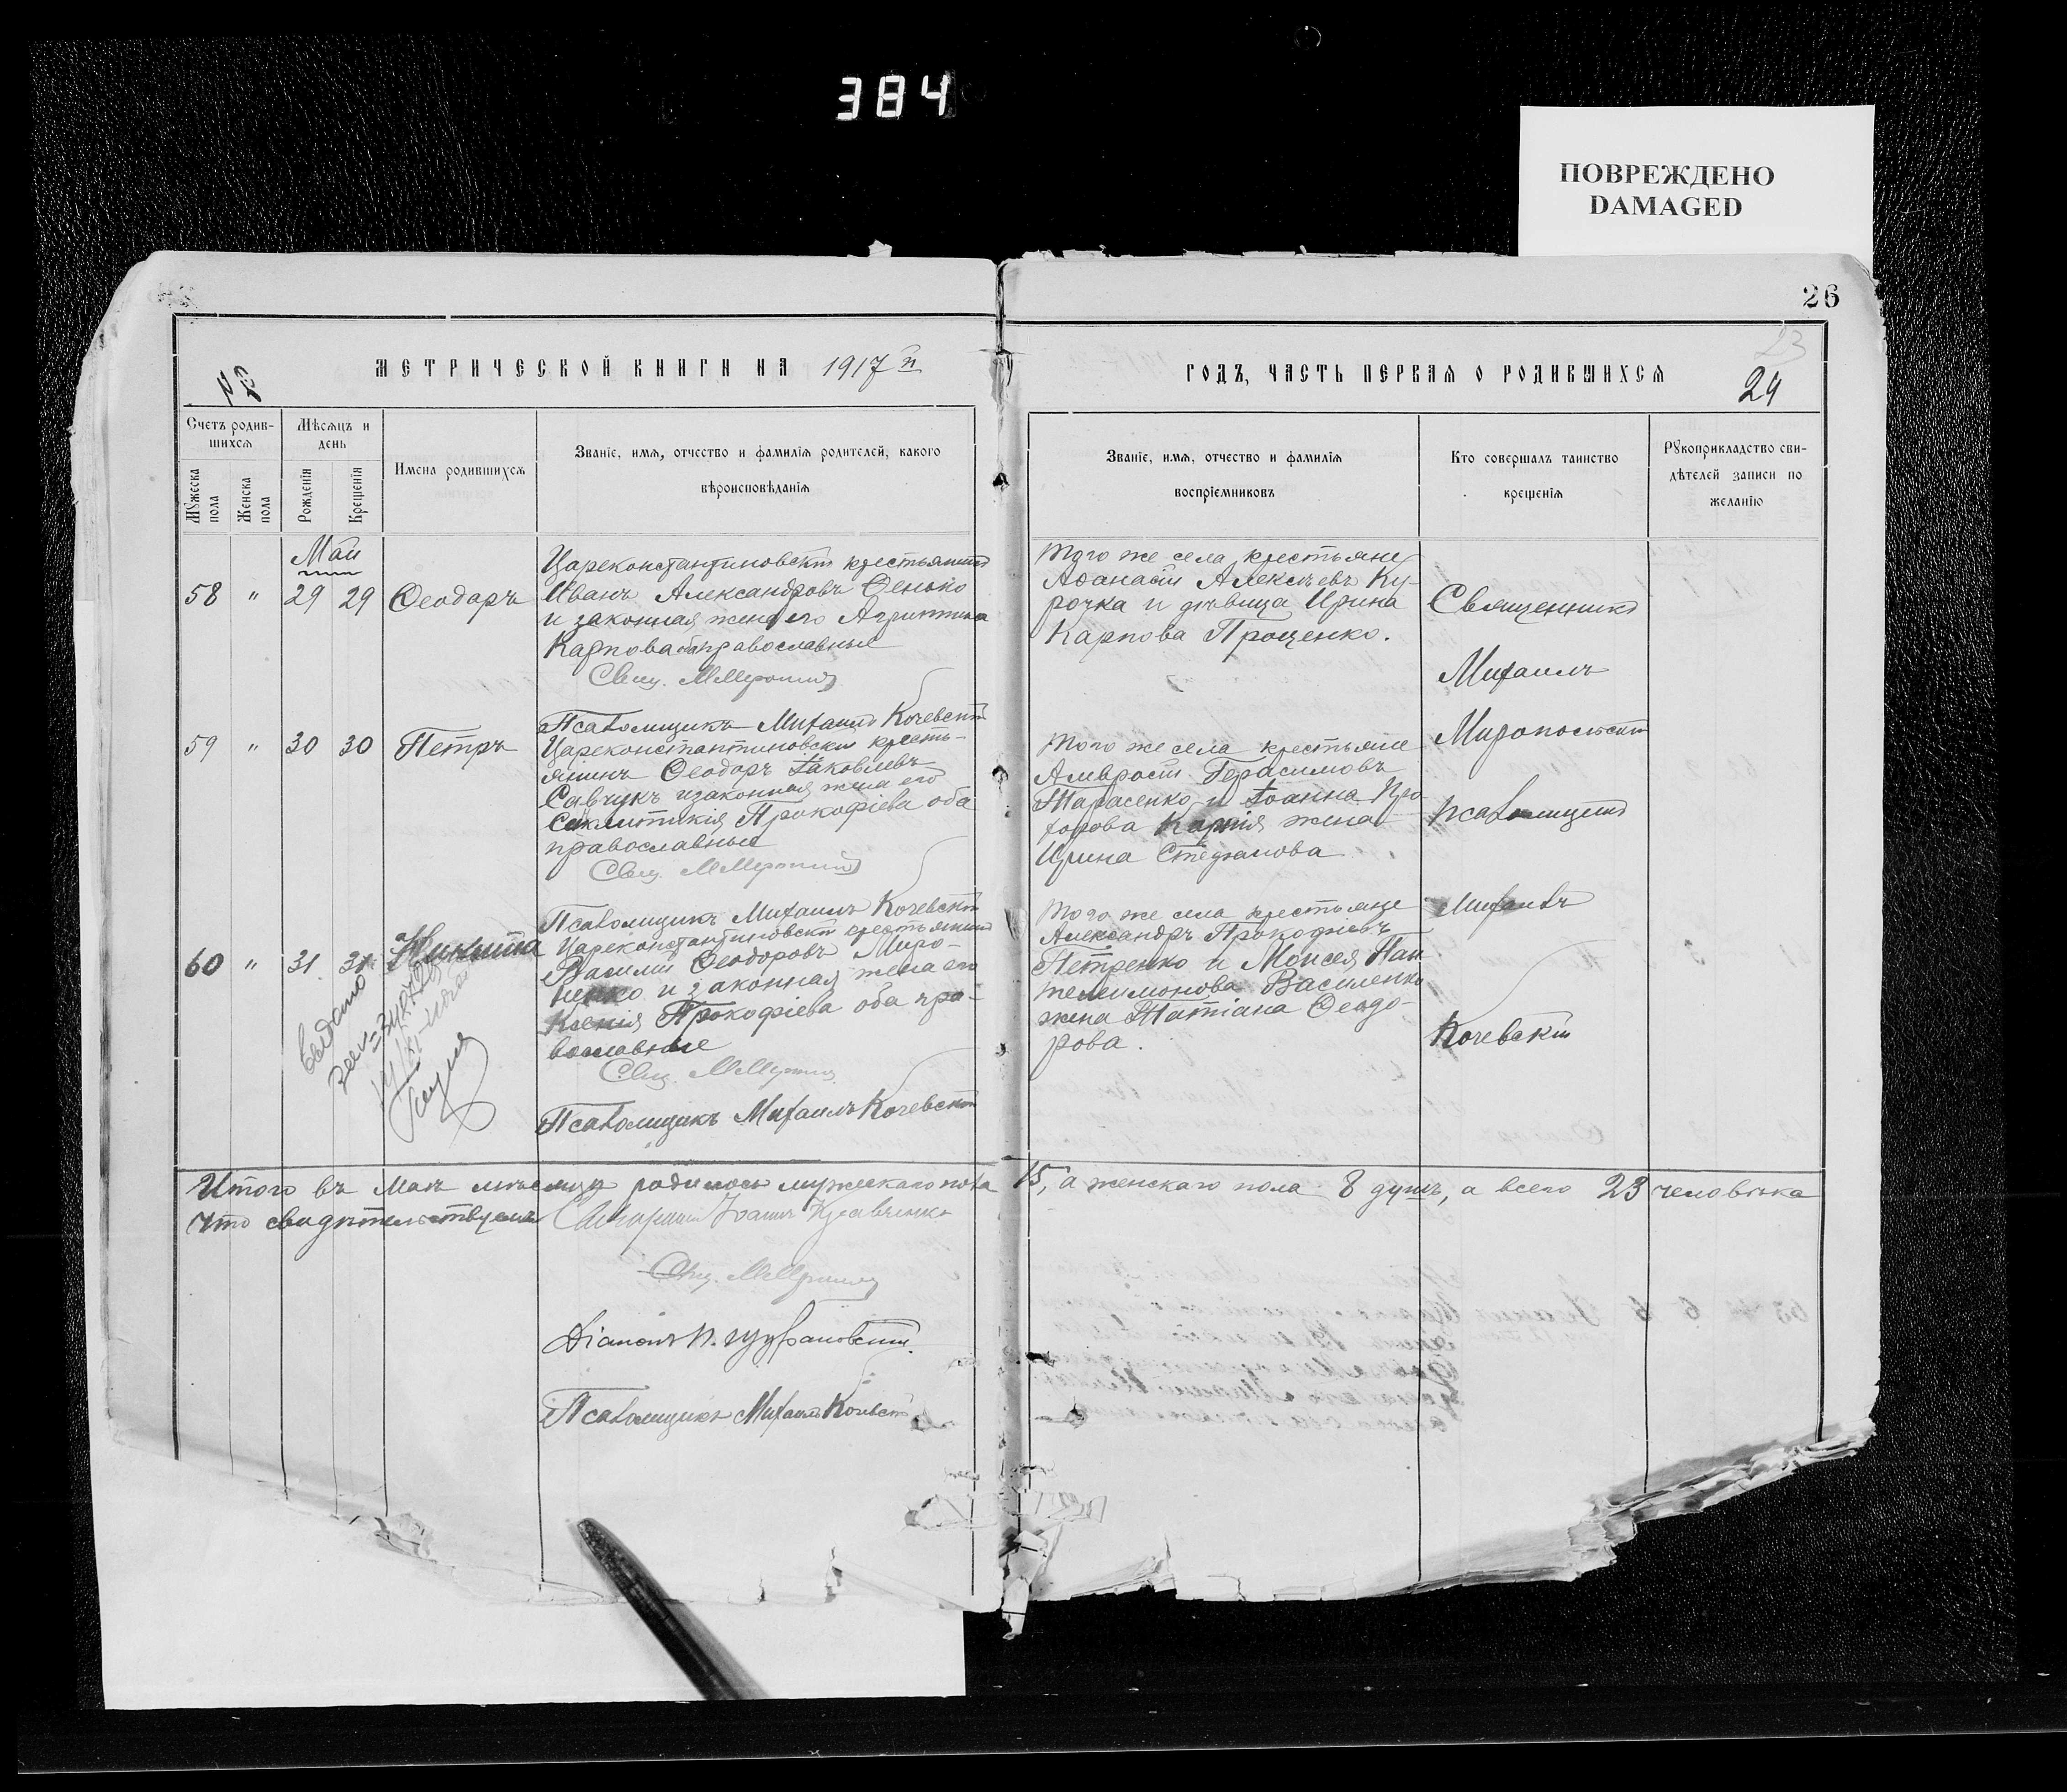 384
ПОВРЕЖДЕНО
DAMAGED
26
МЕТРИЧЕСКОЙ КНИГИ НА 1917 й
ГОДЪ, ЧАСТЬ ПЕРВАЯ О РОДИВШИХСЯ
23
24
Счетъ родив-
шихся
Мужеска пола
Женска пола
Мѣсяцъ и
день
Рожденія
Крещенія
Имена родившихся
Званіе, имя, отчество и фамилія родителей, какого
вѣроисповѣданія
Званіе, имя, отчество и фамилія
воспріемниковъ
Кто совершалъ таинство
крещенія
Рукоприкладство сви-
дѣтелей записи по
желанію
Май
58 " 29 29 Ѳеодоръ
Цареконстантиновскій крестьянинъ
Иванъ Александровъ Ѳенько
и законная жена его Агриппина
Карпова оба православные
Свящ.
Того же села крестьяне
Аѳанасій Алексѣевъ Ку-
рочка и дѣвица Ирина
Карпова Проценко.
Священникъ
Михаилъ
Миропольскій
Псаломщикъ
Михаилъ
Кочевскій
Псаломщикъ Михаилъ Кочевскій
59 " 30 30 Петръ
Цареконстантиновскій кресть-
янинъ Ѳеодоръ Іаковлевъ
Савчукъ и законная жена его
Синклитикія Прокофіева оба
православные
Свящ.
Того же села крестьяне
Амвросій Герасимовъ
Тарасенко и Іоанна Про-
хорова жена
Ирина Стефанова
Псаломщикъ Михаилъ Кочевскій
60 " 31 31 Никита
Цареконстантиновскій крестьянинъ
Василій Ѳеодоровъ Миро-
ненко и законная жена его
Ксенія Прокофіева оба пра-
вославные
Свящ.
Того же села крестьяне
Александръ Прокофіевъ
Петренко и Моисея Пан-
телеимонова Василенко
жена Татіана Ѳеодо-
рова.
Выдано
Псаломщикъ Михаилъ Кочевскій
Итого въ Маѣ мѣсяцѣ родилось мужескаго пола 15, а женскаго пола 8 душъ, а всего 23 человѣка
Что свидѣтельствуемъ Іоаннъ Кравченко
Свящ.
Діаконъ
Псаломщикъ Михаилъ Кочевскій